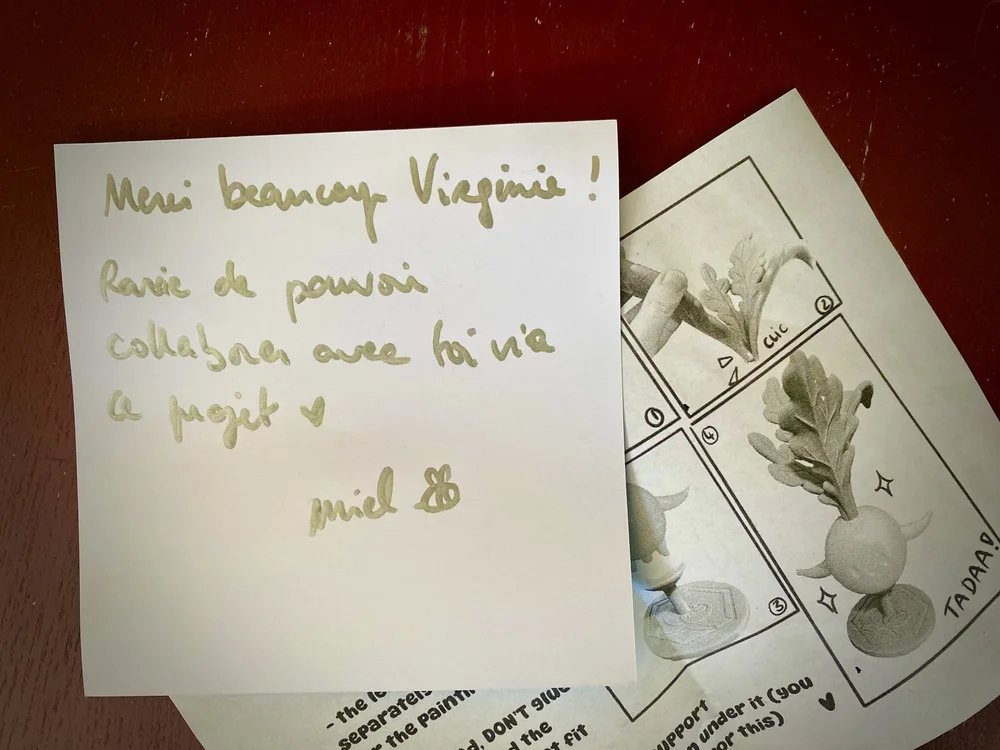 Merci beaucoup Virginie !
Ravie de pouvoir
collaborer avec toi via
ce projet ♥
miel
CLIC
②
①
④
③
TADAA!
- the
separately
the painting
DON'T glue
the
fit
support
under it (you
for this)
♥